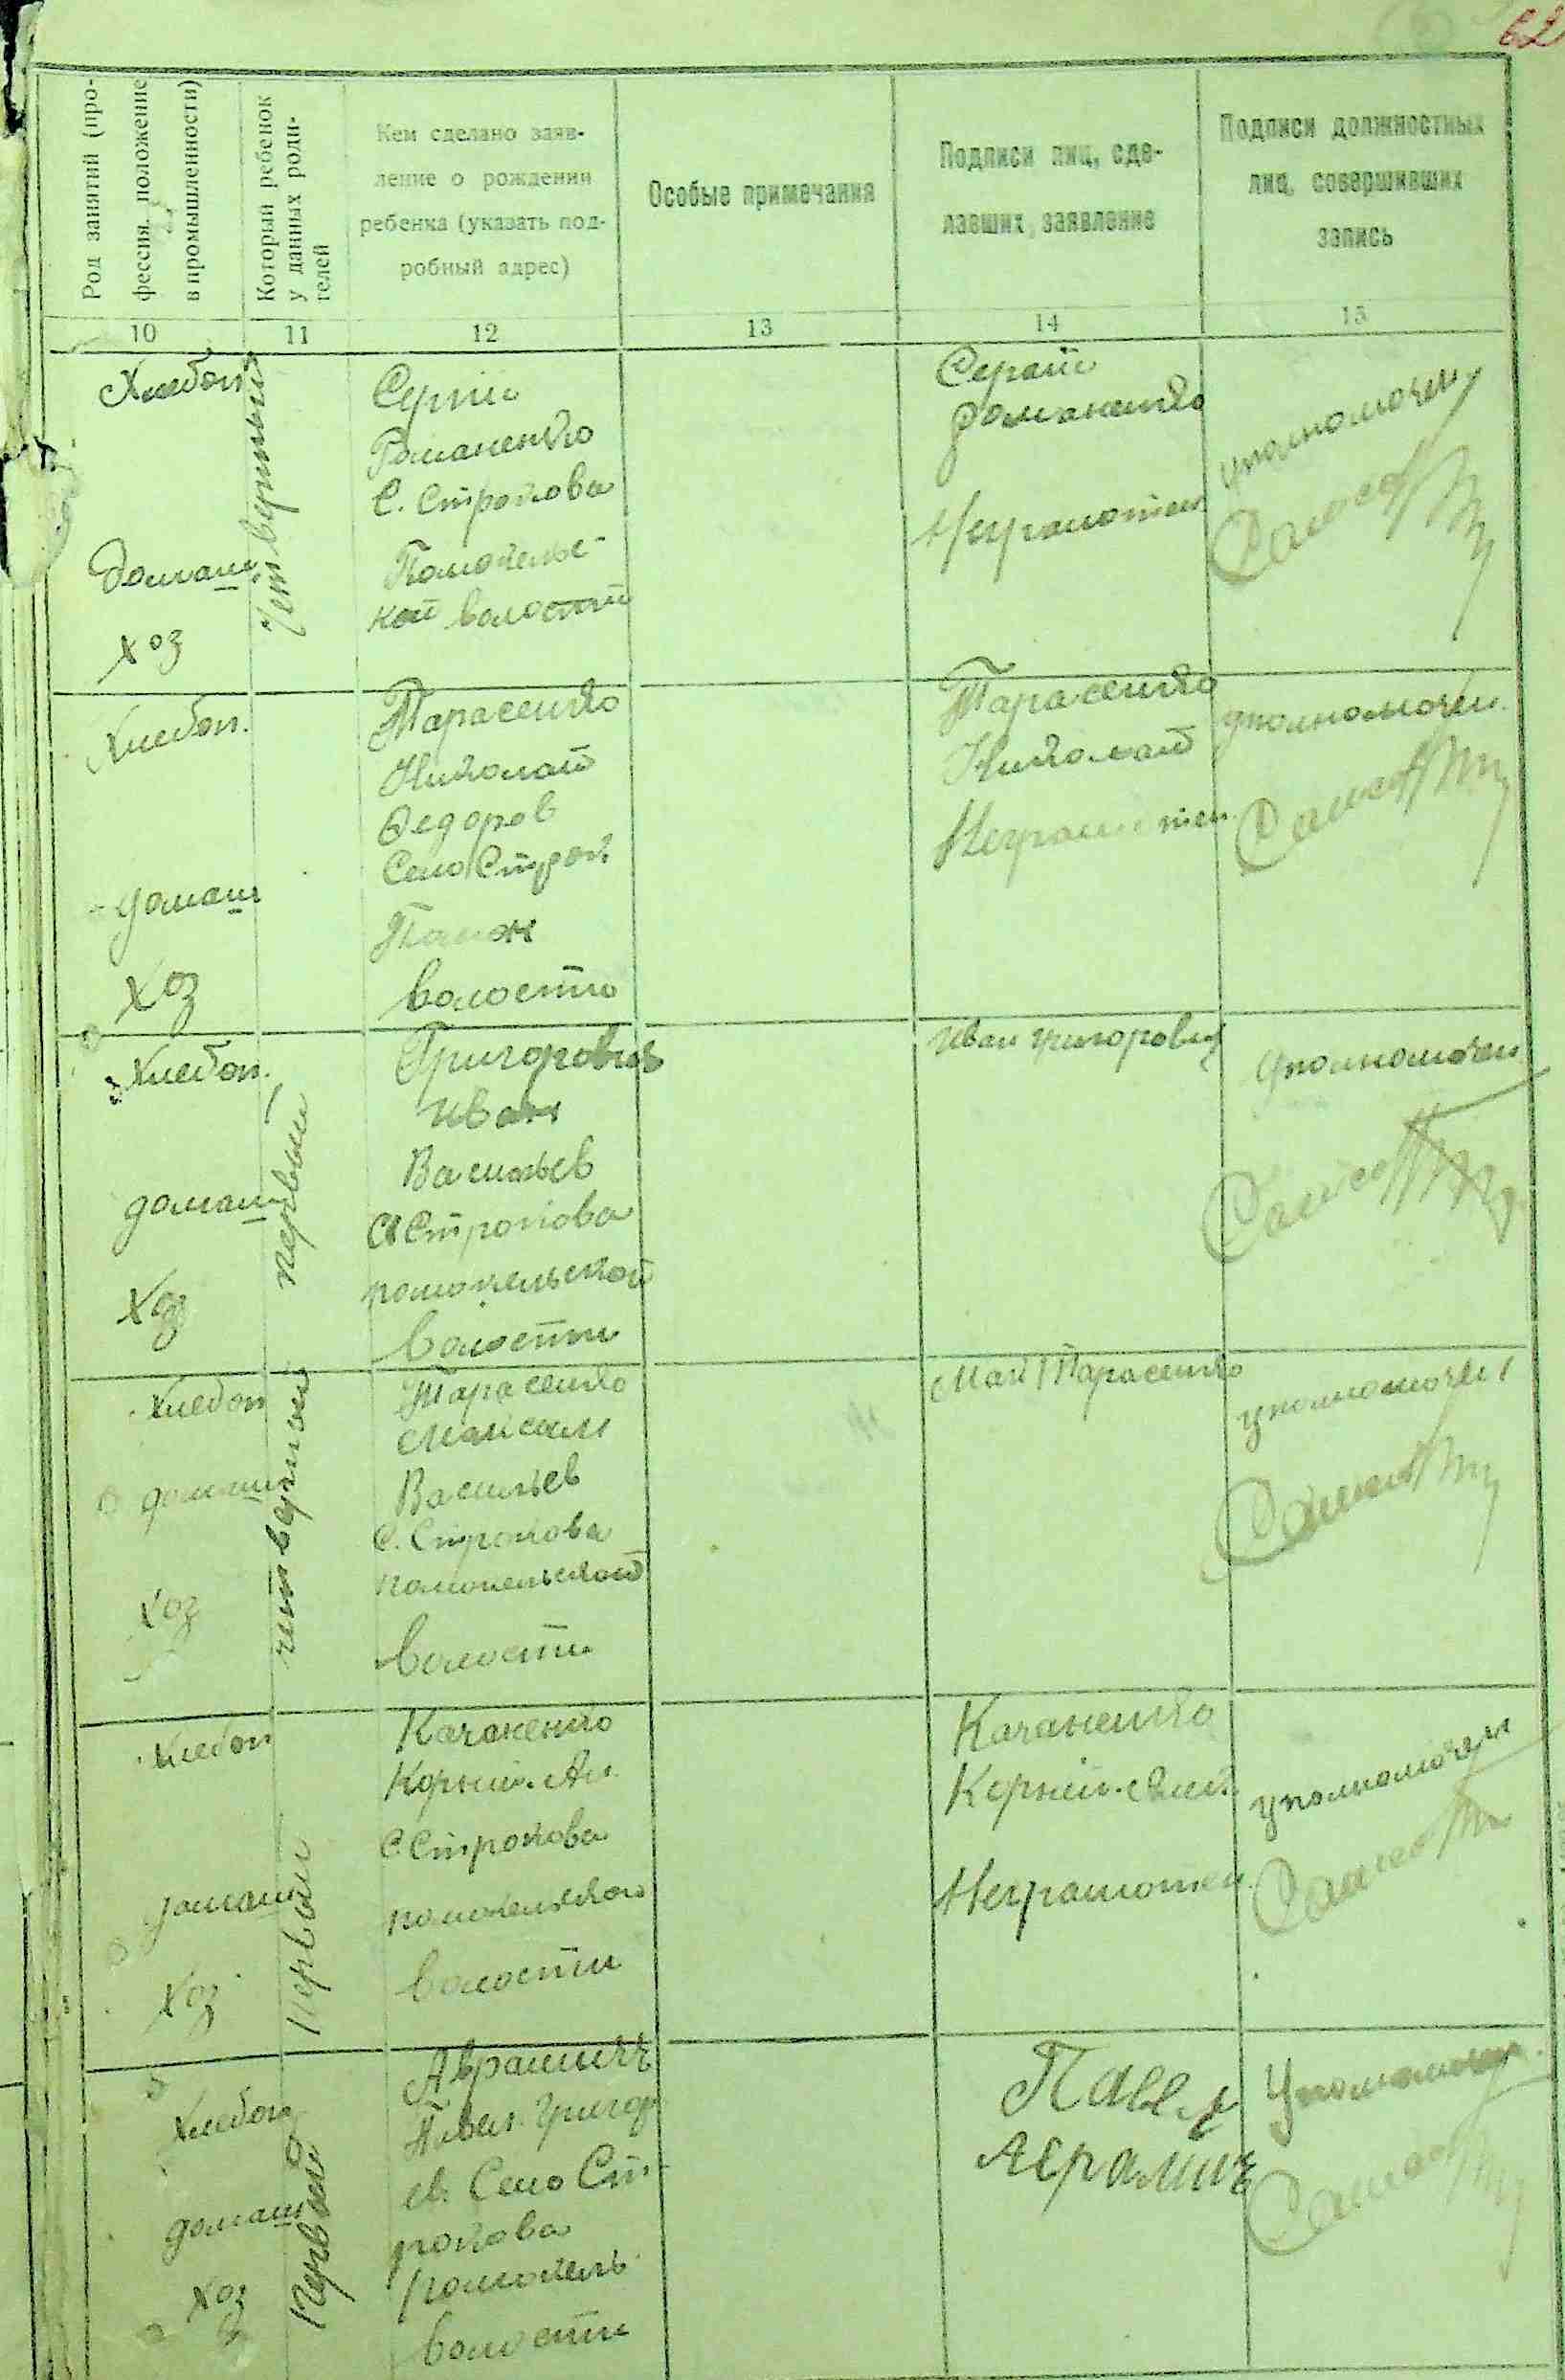 62
Род занятий (про-
фессия, положение
в промышленности)
Который ребенок
у данных роди-
телей
Кем сделано заяв-
ление о рождении
ребенка (указать под-
робный адрес)
Особые примечания
Подписи лиц, сде-
лавших заявление
Подписи должностных
лиц, совершивших
запись
10
11
12
13
14
15
Хлебоп
домаш
хоз
Романенко
С. Строкова
волости
Романенко
Неграмотен
уполномочен
Хлебоп.
домаш
хоз
Тарасенко
Николай
Федоров
Село Строк
волости
Тарасенко
Николай
Неграмотен
уполномочен
Хлебоп.
домаш
хоз
первый
Григорович
Иван
Васильев
С Строкова
волости
Иван Григорович
уполномочен
Хлебоп
домаш
хоз
четвертый
Тарасенко
Максим
Васильев
С. Строкова
волости
Мак Тарасенко
уполномочен
Хлебоп
домаш
хоз
Первый
Качаненко
Корний Ан.
С. Строкова
волости
Качаненко
Корний
Неграмотен
уполномочен
Хлебоп
домаш
хоз
Первый
Аврамич
Павел Григор
ев. Село Ст-
рокова
волости
Павел
Аврамич
Уполномочен